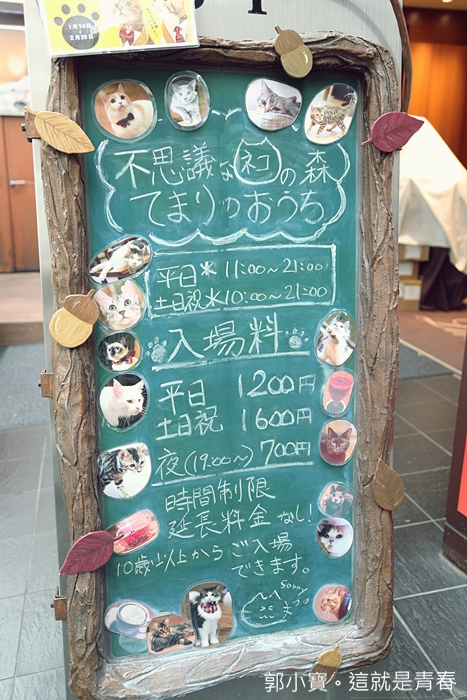 1月14日
2月29日
不思議なネコの森
てまりのおうち
平日* 11:00~21:00
土日祝* 10:00~21:00
入場料
平日 1200円
土日祝 1600円
夜(19:00~) 700円
時間制限
延長料金 なし!
10歳以上から ご入場
できます。
sorry
郭小寶。這就是青春